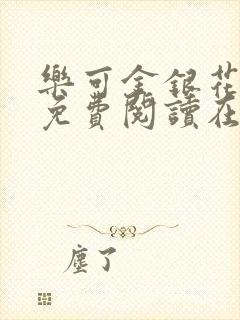 樂可金銀花
免費閱讀在
塵了